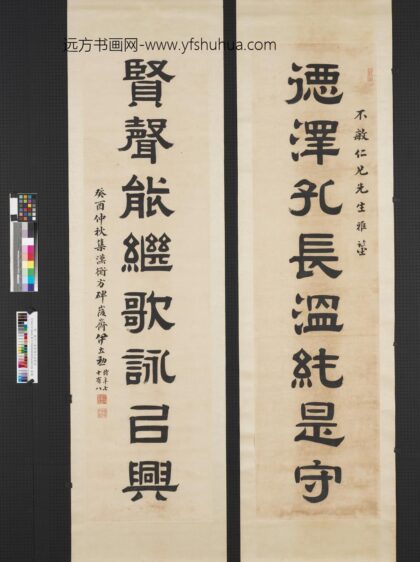 远方书画网-www.yfshuhua.com
不敏仁兄先生雅鑒
德澤孔長溫純是守
賢聲能繼歌詠㠯興
癸酉仲秋集漢衡方碑峻齋伊立勳
時年七
十有八